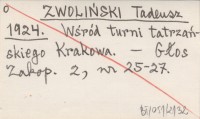 o ZWOLIŃSKI Tadeusz
1924. Wśród turni tatrzań-
skiego Krakowa. – Głos
Zakop. 2, nr 25-27.